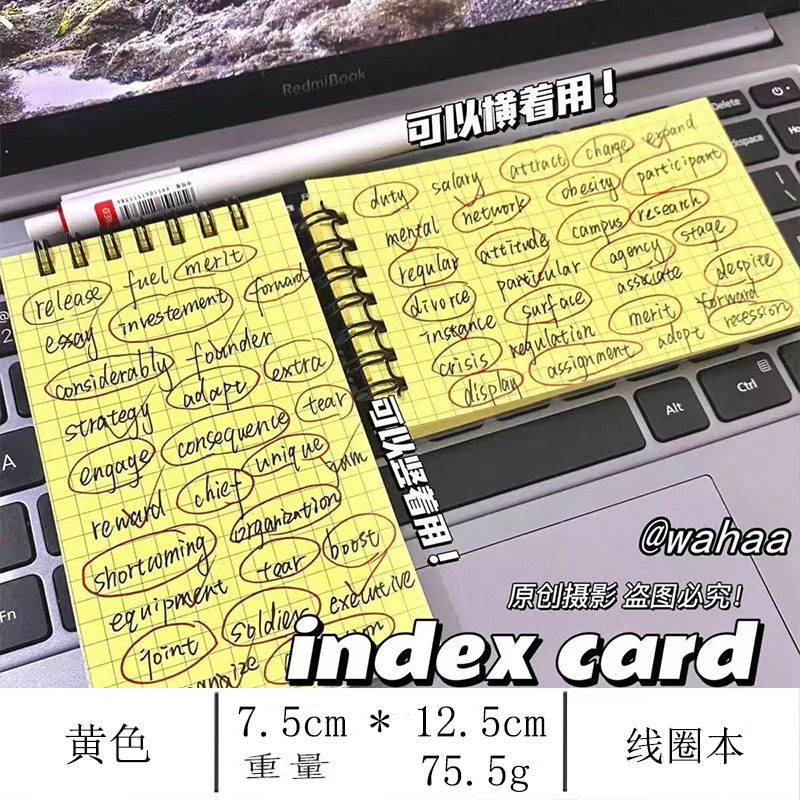 RedmiBook
可以横着用！
Delete
duty salary attract charge expand
mental network obesity participant
regular attitude campus research
divorce particular agency stage
instance surface associate despite
crisis regulation merit forward
display assignment adopt recession
release fuel merit
essay investement forward
considerably founder
strategy adapt extra
engage consequence tear
reward chief unique
shortcoming organization
equipment tear boost
joint soldiers executive
可以竖着用！
Alt
Ctrl
A
Fn
@wahaa
原创摄影 盗图必究！
index card
黄色
7.5cm * 12.5cm
重量 75.5g
线圈本